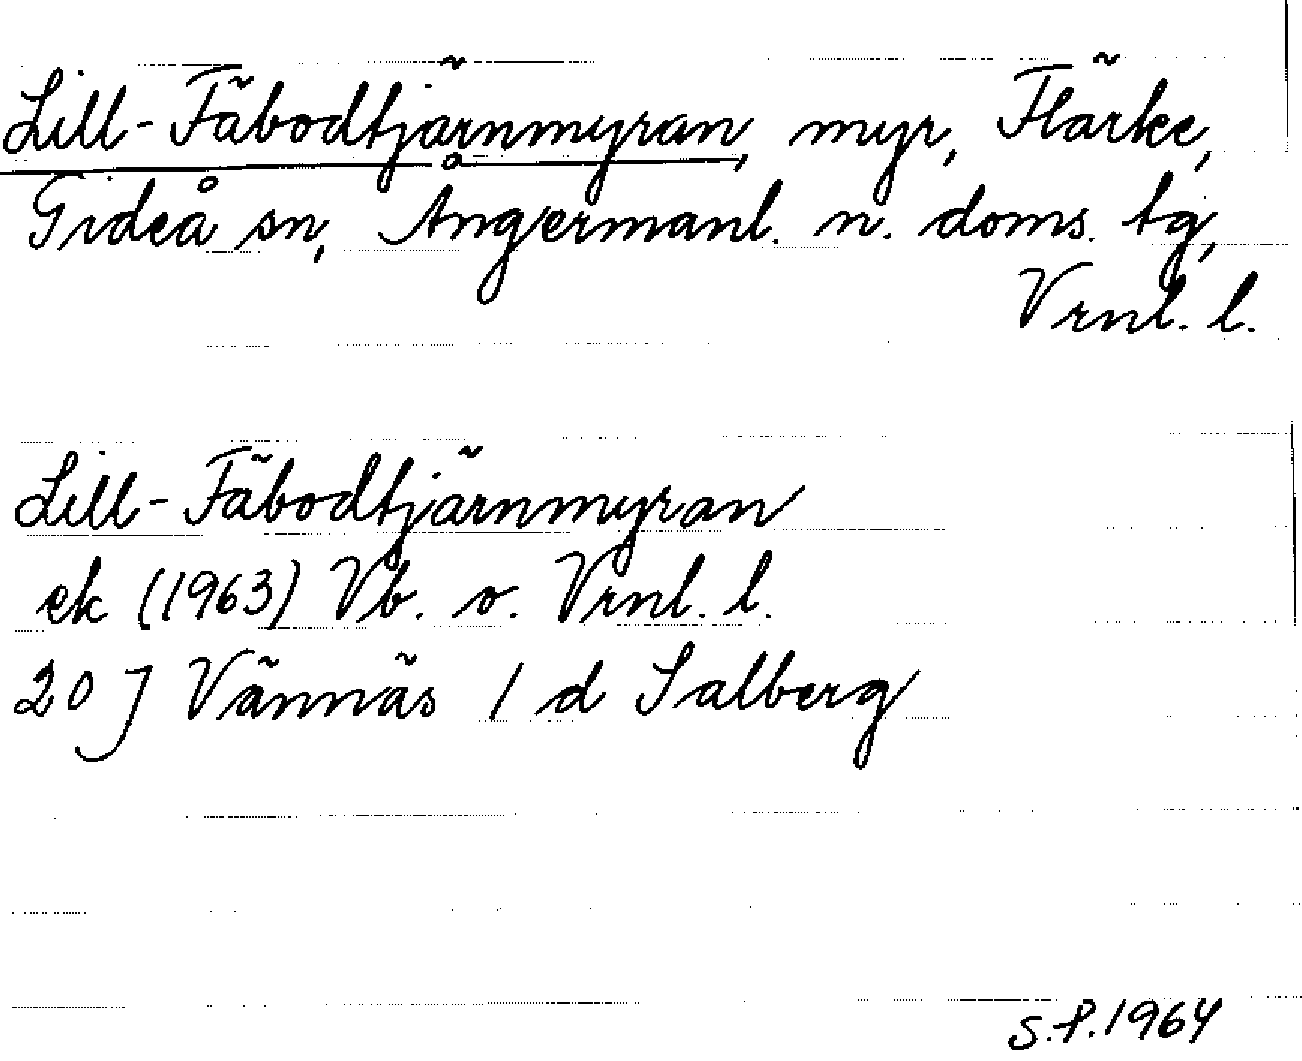 Lill-Fäbodtjärnmyran, myr, Flärke,
Gideå sn, Ångermanl. n. doms. tg,
Vrnl. l.
Lill-Fäbodtjärnmyran
ek (1963) Vb. o. Vrnl. l.
20 J Vännäs 1 d Salberg
S.P. 1964